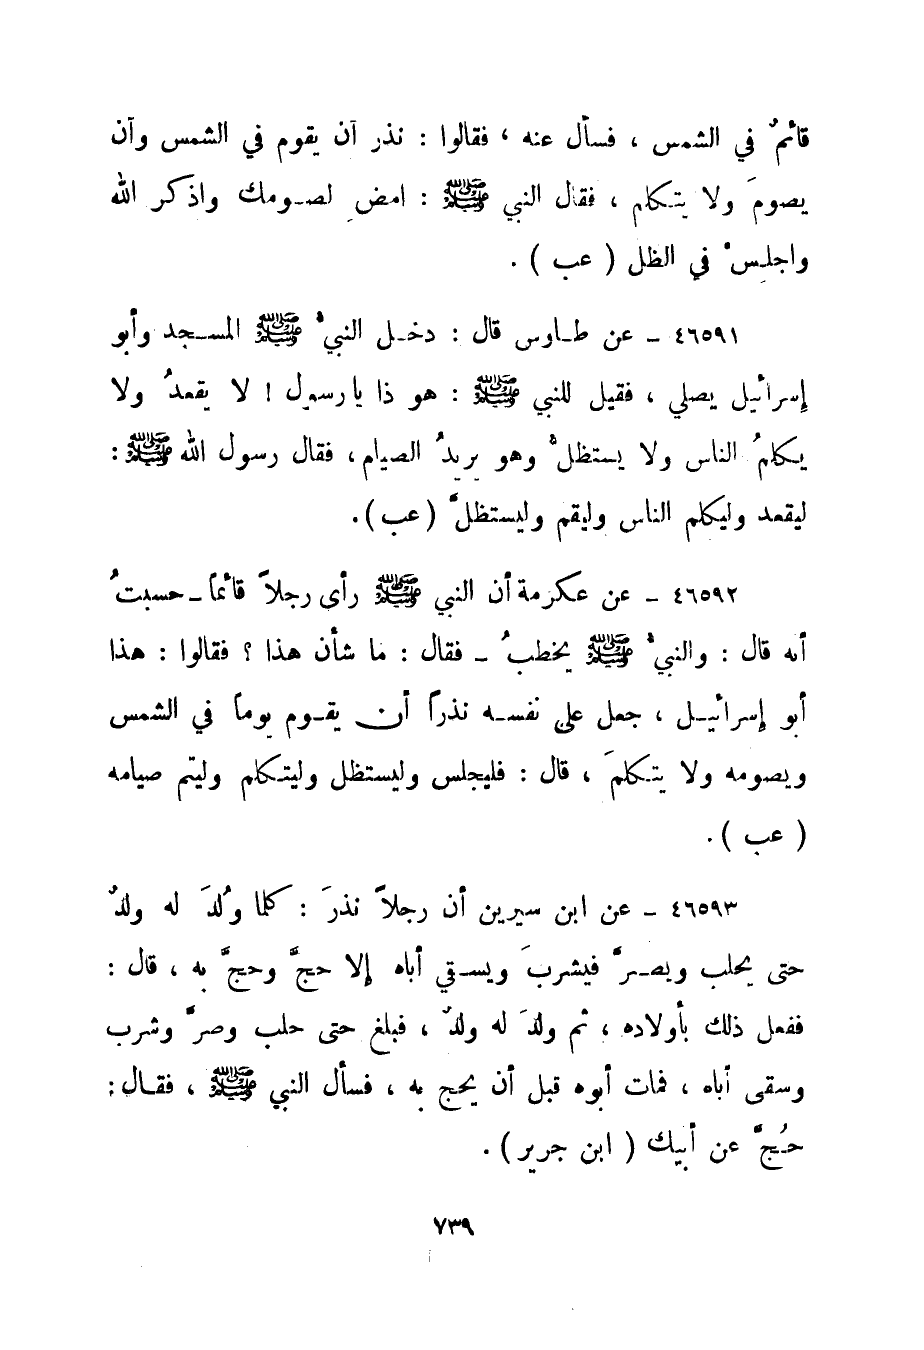 قائمٌ في الشمس ، فسأل عنه ، فقالوا : نذر أن يقوم في الشمس وأن
يصومَ ولا يتكلم ، فقال النبي ﷺ : امضِ لصومك واذكر الله
واجلسْ في الظل ( عب ) .
٤٦٥٩١ ـ عن طاوس قال : دخل النبيُّ ﷺ المسجد وأبو
إسرائيل يصلي ، فقيل للنبي ﷺ : هو ذا يا رسول ! لا يقعدُ ولا
يكلمُ الناس ولا يستظلُّ وهو يريدُ الصيام ، فقال رسول الله ﷺ :
ليقعد وليكلم الناس وليقم وليستظلَّ ( عب ) .
٤٦٥٩٢ ـ عن عكرمة أن النبي ﷺ رأى رجلاً قائماً ـ حسبتُ
أنه قال : والنبيُّ ﷺ يخطبُ ـ فقال : ما شأن هذا ؟ فقالوا : هذا
أبو إسرائيل ، جعل على نفسه نذراً أن يقوم يوماً في الشمس
ويصومه ولا يتكلمَ ، قال : فليجلس وليستظل وليتكلم وليتم صيامه
( عب ) .
٤٦٥٩٣ ـ عن ابن سيرين أن رجلاً نذرَ : كلما وُلدَ له ولدٌ
حتى يحلب ويصرَّ فيشربَ ويسقي أباه إلا حجَّ وحجَّ به ، قال :
ففعل ذلك بأولاده ، ثم ولدَ له ولدٌ ، فبلغ حتى حلب وصرَّ وشرب
وسقى أباه ، فمات أبوه قبل أن يحج به ، فسأل النبي ﷺ ، فقال :
حُجَّ عن أبيك ( ابن جرير ) .
٧٣٩